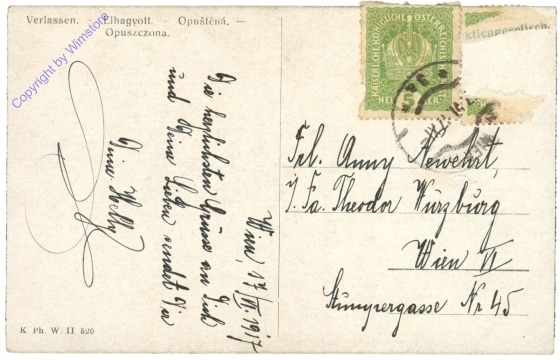 Verlassen. — Elhagyott. — Opuštěná. —
Opuszczona.
Copyright by Wimstore
Wien, 17/VI. 1917
Die herzlichsten Grüsse an Dich
und Deine Lieben sendet Dir
Helly
K. Ph. W. II 520
KAISERLICHE KÖNIGLICHE ÖSTERREICHISCHE
5 HELLER
ktiengesellsch.
WIEN
Frl. Anny
p. Fa. Theodor Würzburg
Wien VI
Stumpergasse Nr 45